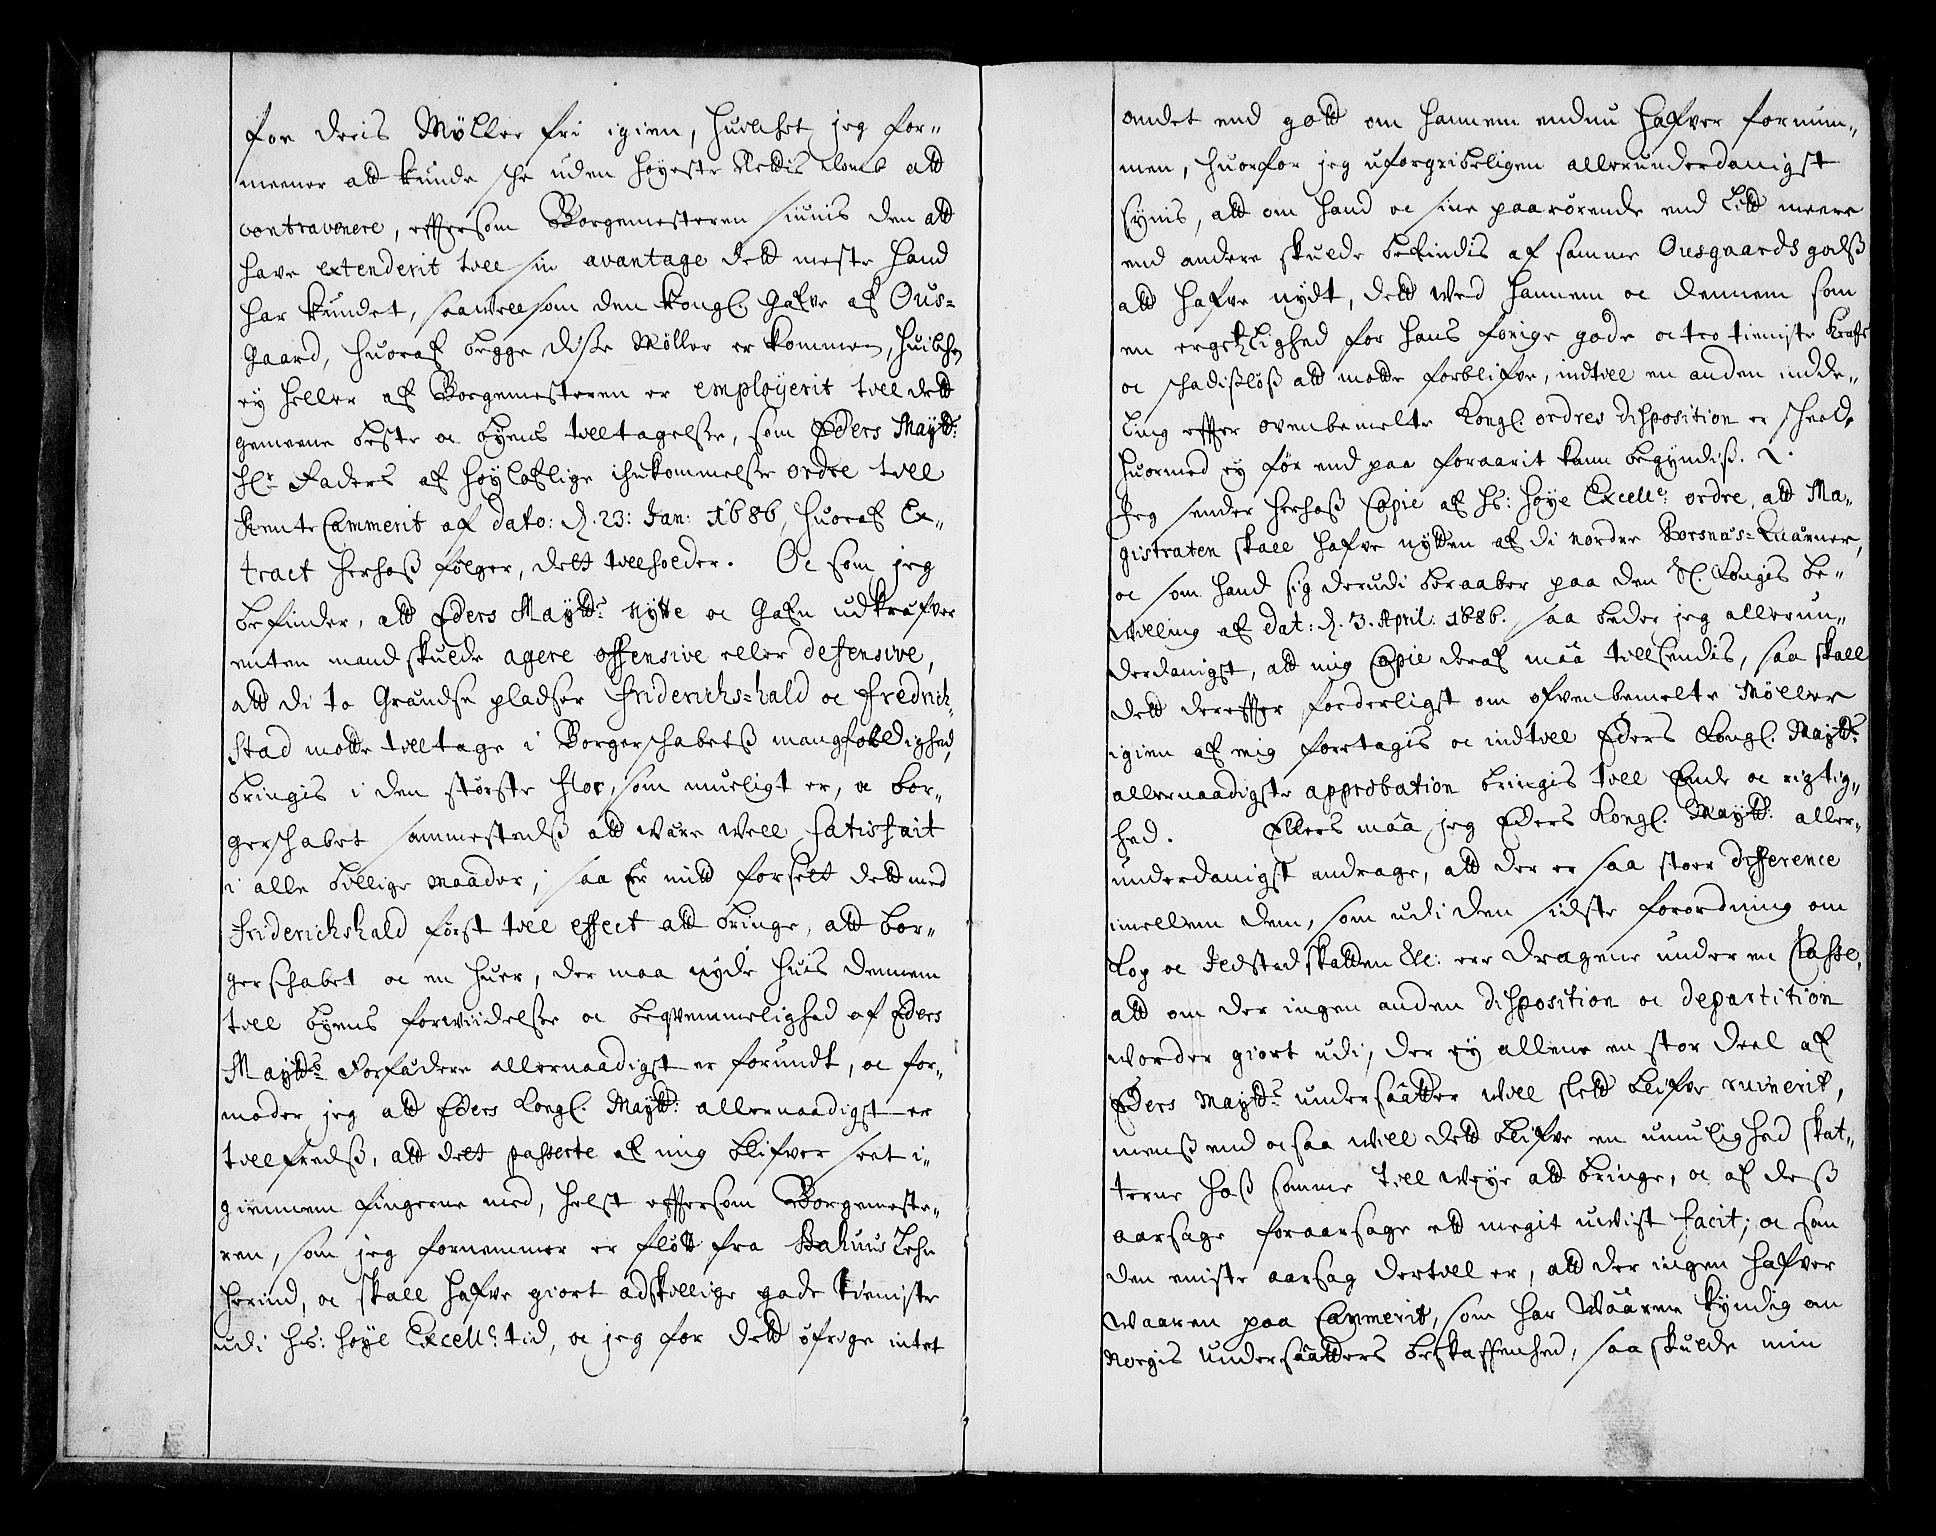 for deris Møller fri igien, huilchet jeg for-
meener att kunde sche uden høyeste Rettis domb att
contravenere, effersom Borgemesteren siunis den att
have extenderit till sin avantage dett meste hand
har kundet, saawell som den Kongl. Gafve af Ous-
gaard, huoraf begge disse Møller er kommen, huilchen
ey heller af Borgemesteren er employerit till dett
gemeene beste oc byens tilltagelse, som Eders Maytts
Hr Faders af høyloflige ihukommelse ordre till
RenteCammerit af dato: d. 23: Jan: 1686, huoraf Ex-
tract herhoß følger, dett tillholder. Oc som jeg
befinder, att Eders Maytts Nytte oc Gafn udkræfver
enten mand skulde agere offensive eller defensive,
att di to Grændse pladser Friderichs-hald oc Fredrich-
stad motte tilltage i Borgerschabetß mangfoldighed,
bringis i den største flor, som mueligt er, oc bor-
gerschabet sammestedß att være well satisfait
i alle billige maader; saa er mitt forsett dett med
Friderichshald først till effect att bringe, att bor-
gerschabet oc en huer, der maa nyde huis dennem
till byens forwidelse oc beqvemmelighed af Eders
Maytts Forfædere allernaadigst er forundt, oc for-
moder jeg att Eders Kongl. Maytt: allernaadigst er
tillfredß, att dett passerte af mig blifver seet i-
giennem fingerne med, helst effersom Borgemeste-
ren, som jeg fornemmer er fløtt fra Bahuus Lehn
herind, oc skall hafve giort adskillige gode tieniste
udi hs: høye Excell:s tid, oc jeg for dett øfrige intet
andet end gott om hannem endnu hafver fornum-
men, huorfor jeg uforgribeligen allerunderdanigst
synis, att om hand oc sine paarørende end litt meere
end andre skulde befindis af samme Ousgaards godß
att hafve nydt, dett wed hannem oc dennem som
en ergetzlighed for hans forige gode oc tro tieniste
oc schadisløß att motte forblifve, indtill en anden indde-
ling effer ovenbemelte Kongl. ordres disposition er scheed,
huormed ey før end paa foraarit kann begyndiß.
Jeg sender herhoß Copie af hs: høye Excell:s ordre, att Ma-
gistraten skall hafve nytten af di nordre Porsnæs-Quærner,
oc som hand sig derudi beraaber paa den Sl. Kongis be-
willing af dat: d. 3. April: 1686. saa beder jeg allerun-
derdanigst, att mig Copie deraf maa tillsendis, saa skall
dett dereffer forderligst om ofvenbemelte Møller
igien af mig foretagis oc indtill Eders Kongl. Maytts
allernaadigste approbation bringis till Ende oc rigtig-
hed. Ellers maa jeg Eders Kongl. Maytt: aller-
underdanigst andrage, att der er saa stoer difference
imellem dem, som udi den sidste forordning om
Kop oc Ildstedskatten &c: ere dragene under en Classe,
att om der ingen anden disposition oc departition
worder giort udi, der ey allene en stor deel af
Eders Maytts undersaatter will slett blifve ruinerit,
menß end ocsaa will dett blifve en umulighed skat-
terne hoß samme till weye att bringe, oc af deß
aarsage foraarsage ett megit uwist facit; oc som
den eniste aarsag dertill er, att der ingen hafver
waaren paa Cammerit, som har wæren kyndig om
Norgis undersaatters beskaffenhed, saa skulde min